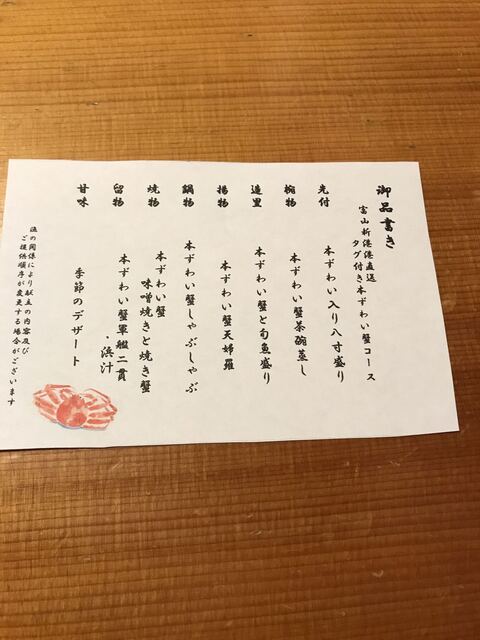 御品書き
富山新港港直送
タグ付き本ずわい蟹コース
先付 本ずわい入り八寸盛り
椀物 本ずわい蟹茶碗蒸し
造里 本ずわい蟹と旬魚盛り
揚物 本ずわい蟹天婦羅
鍋物 本ずわい蟹しゃぶしゃぶ
焼物 本ずわい蟹
味噌焼きと焼き蟹
留物 本ずわい蟹軍艦二貫
・浜汁
甘味 季節のデザート
漁の関係により献立の内容及び
ご提供順序が変更する場合がございます